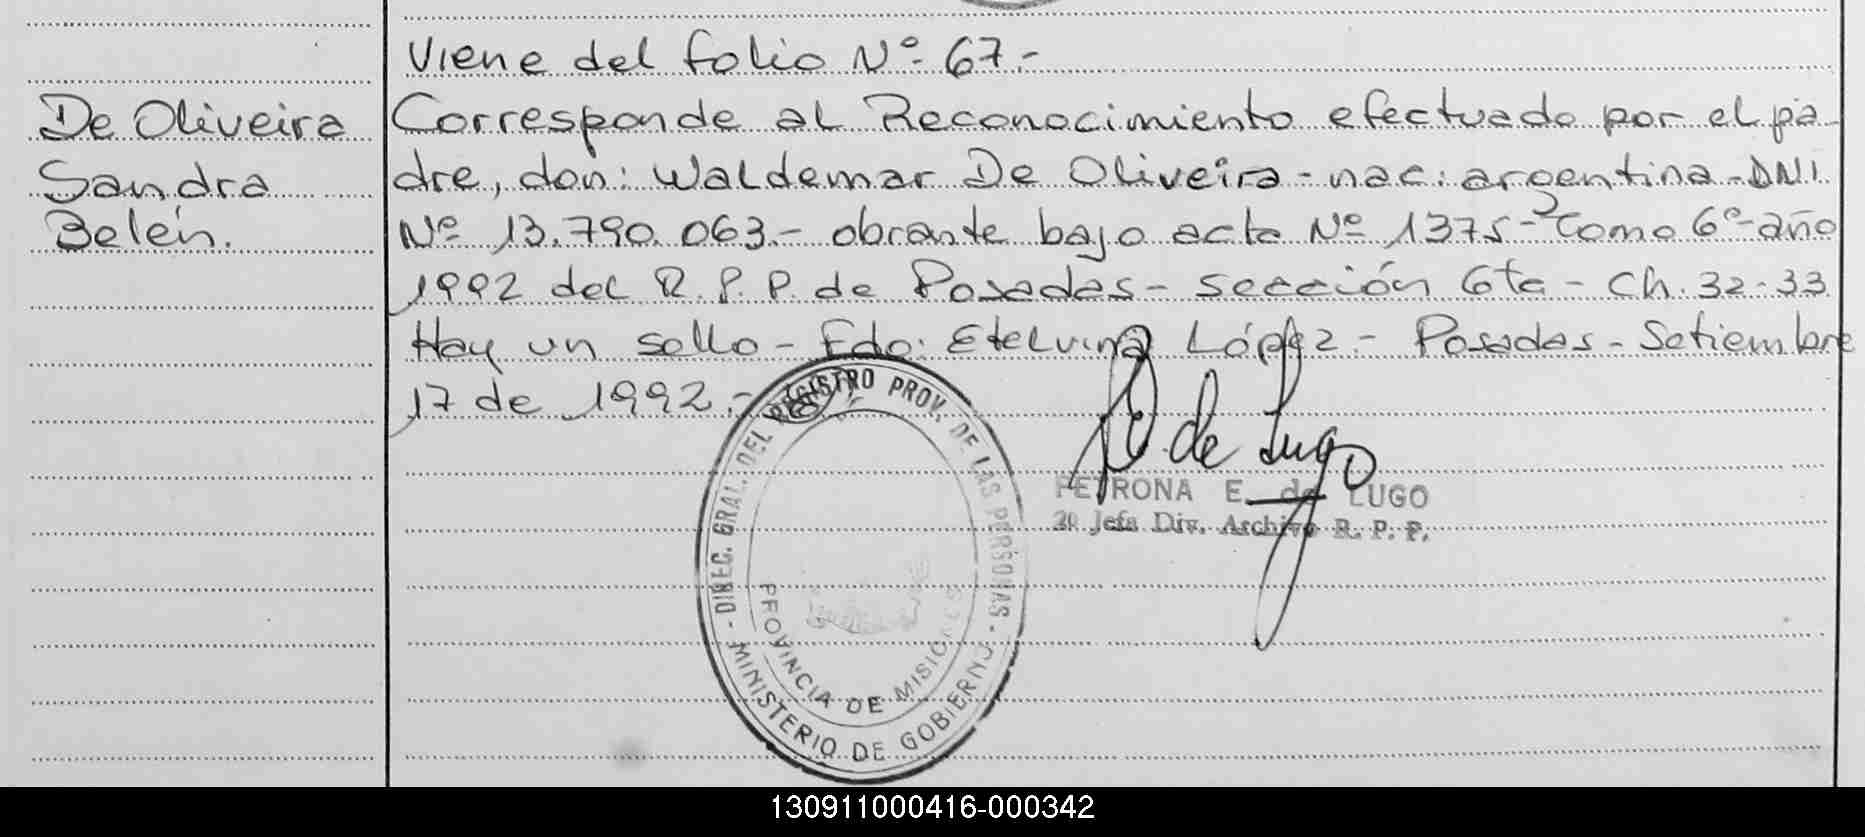 Viene del folio Nº 67.-
De Oliveira
Sandra
Belén.
Corresponde al Reconocimiento efectuado por el pa-
dre, don: Waldemar De Oliveira - nac: argentina - DNI.
Nº 13.790.063.- obrante bajo acta Nº 1375 - Tomo 6º - año
1992 del R.P.P. de Posadas - sección 6ta - Ch. 32-33
Hay un sello - Fdo: Etelvina López - Posadas - Setiembre
17 de 1992.-
de Lugo
PETRONA E. de LUGO
Jefa Div. Archivo R. P. P.
- DIREC. GRAL. DEL REGISTRO PROV. DE LAS PERSONAS -
MINISTERIO DE GOBIERNO
PROVINCIA DE MISIONES
130911000416-000342